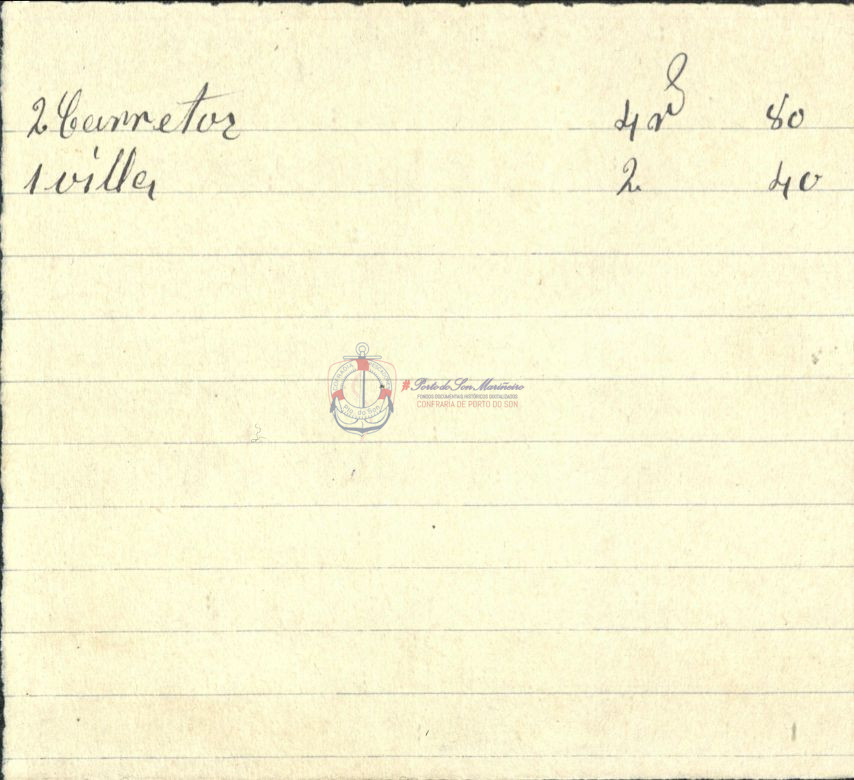 2 Carretos 4 rs 80
1 villa 2 40
# Porto do Son Mariñeiro
FONDOS DOCUMENTAIS HISTÓRICOS DIXITALIZADOS
CONFRARÍA DE PORTO DO SON
Pto. do Son